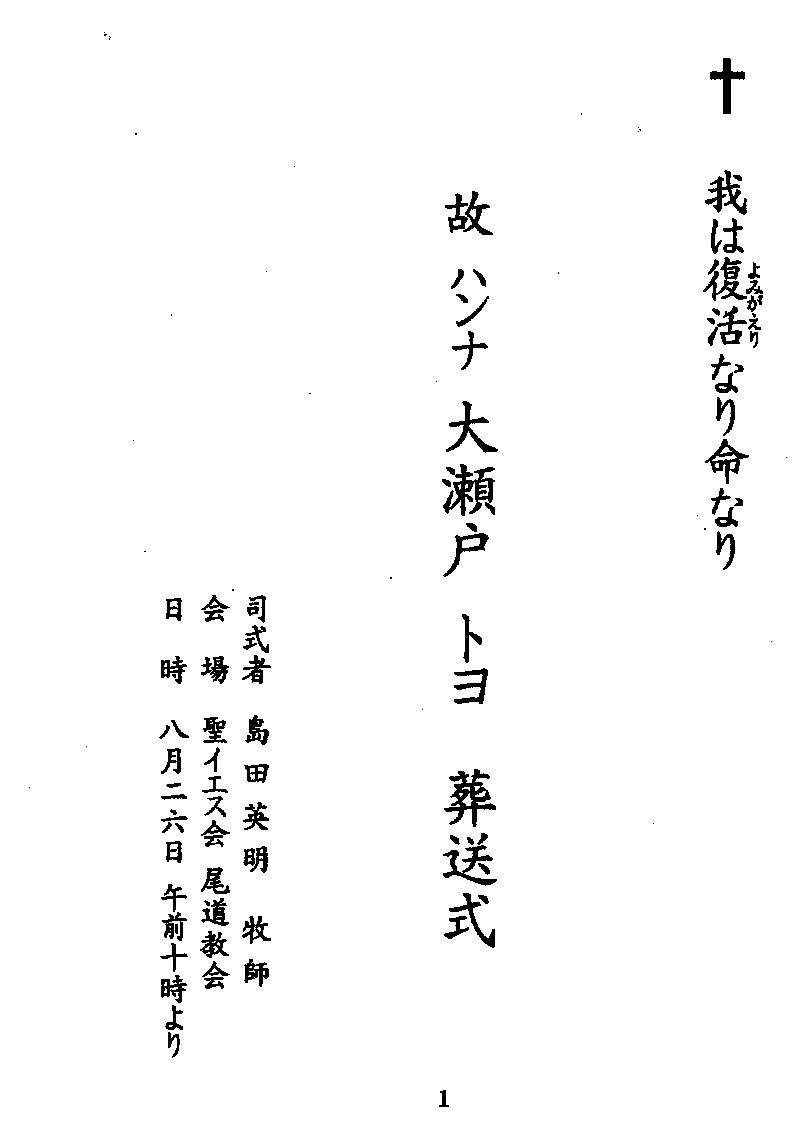 我は復活なり命なり
よみがえり
故 ハンナ 大瀬戸 トヨ 葬送式
司式者 島田英明 牧師
会場 聖イエス会 尾道教会
日時 八月二六日 午前十時より
1